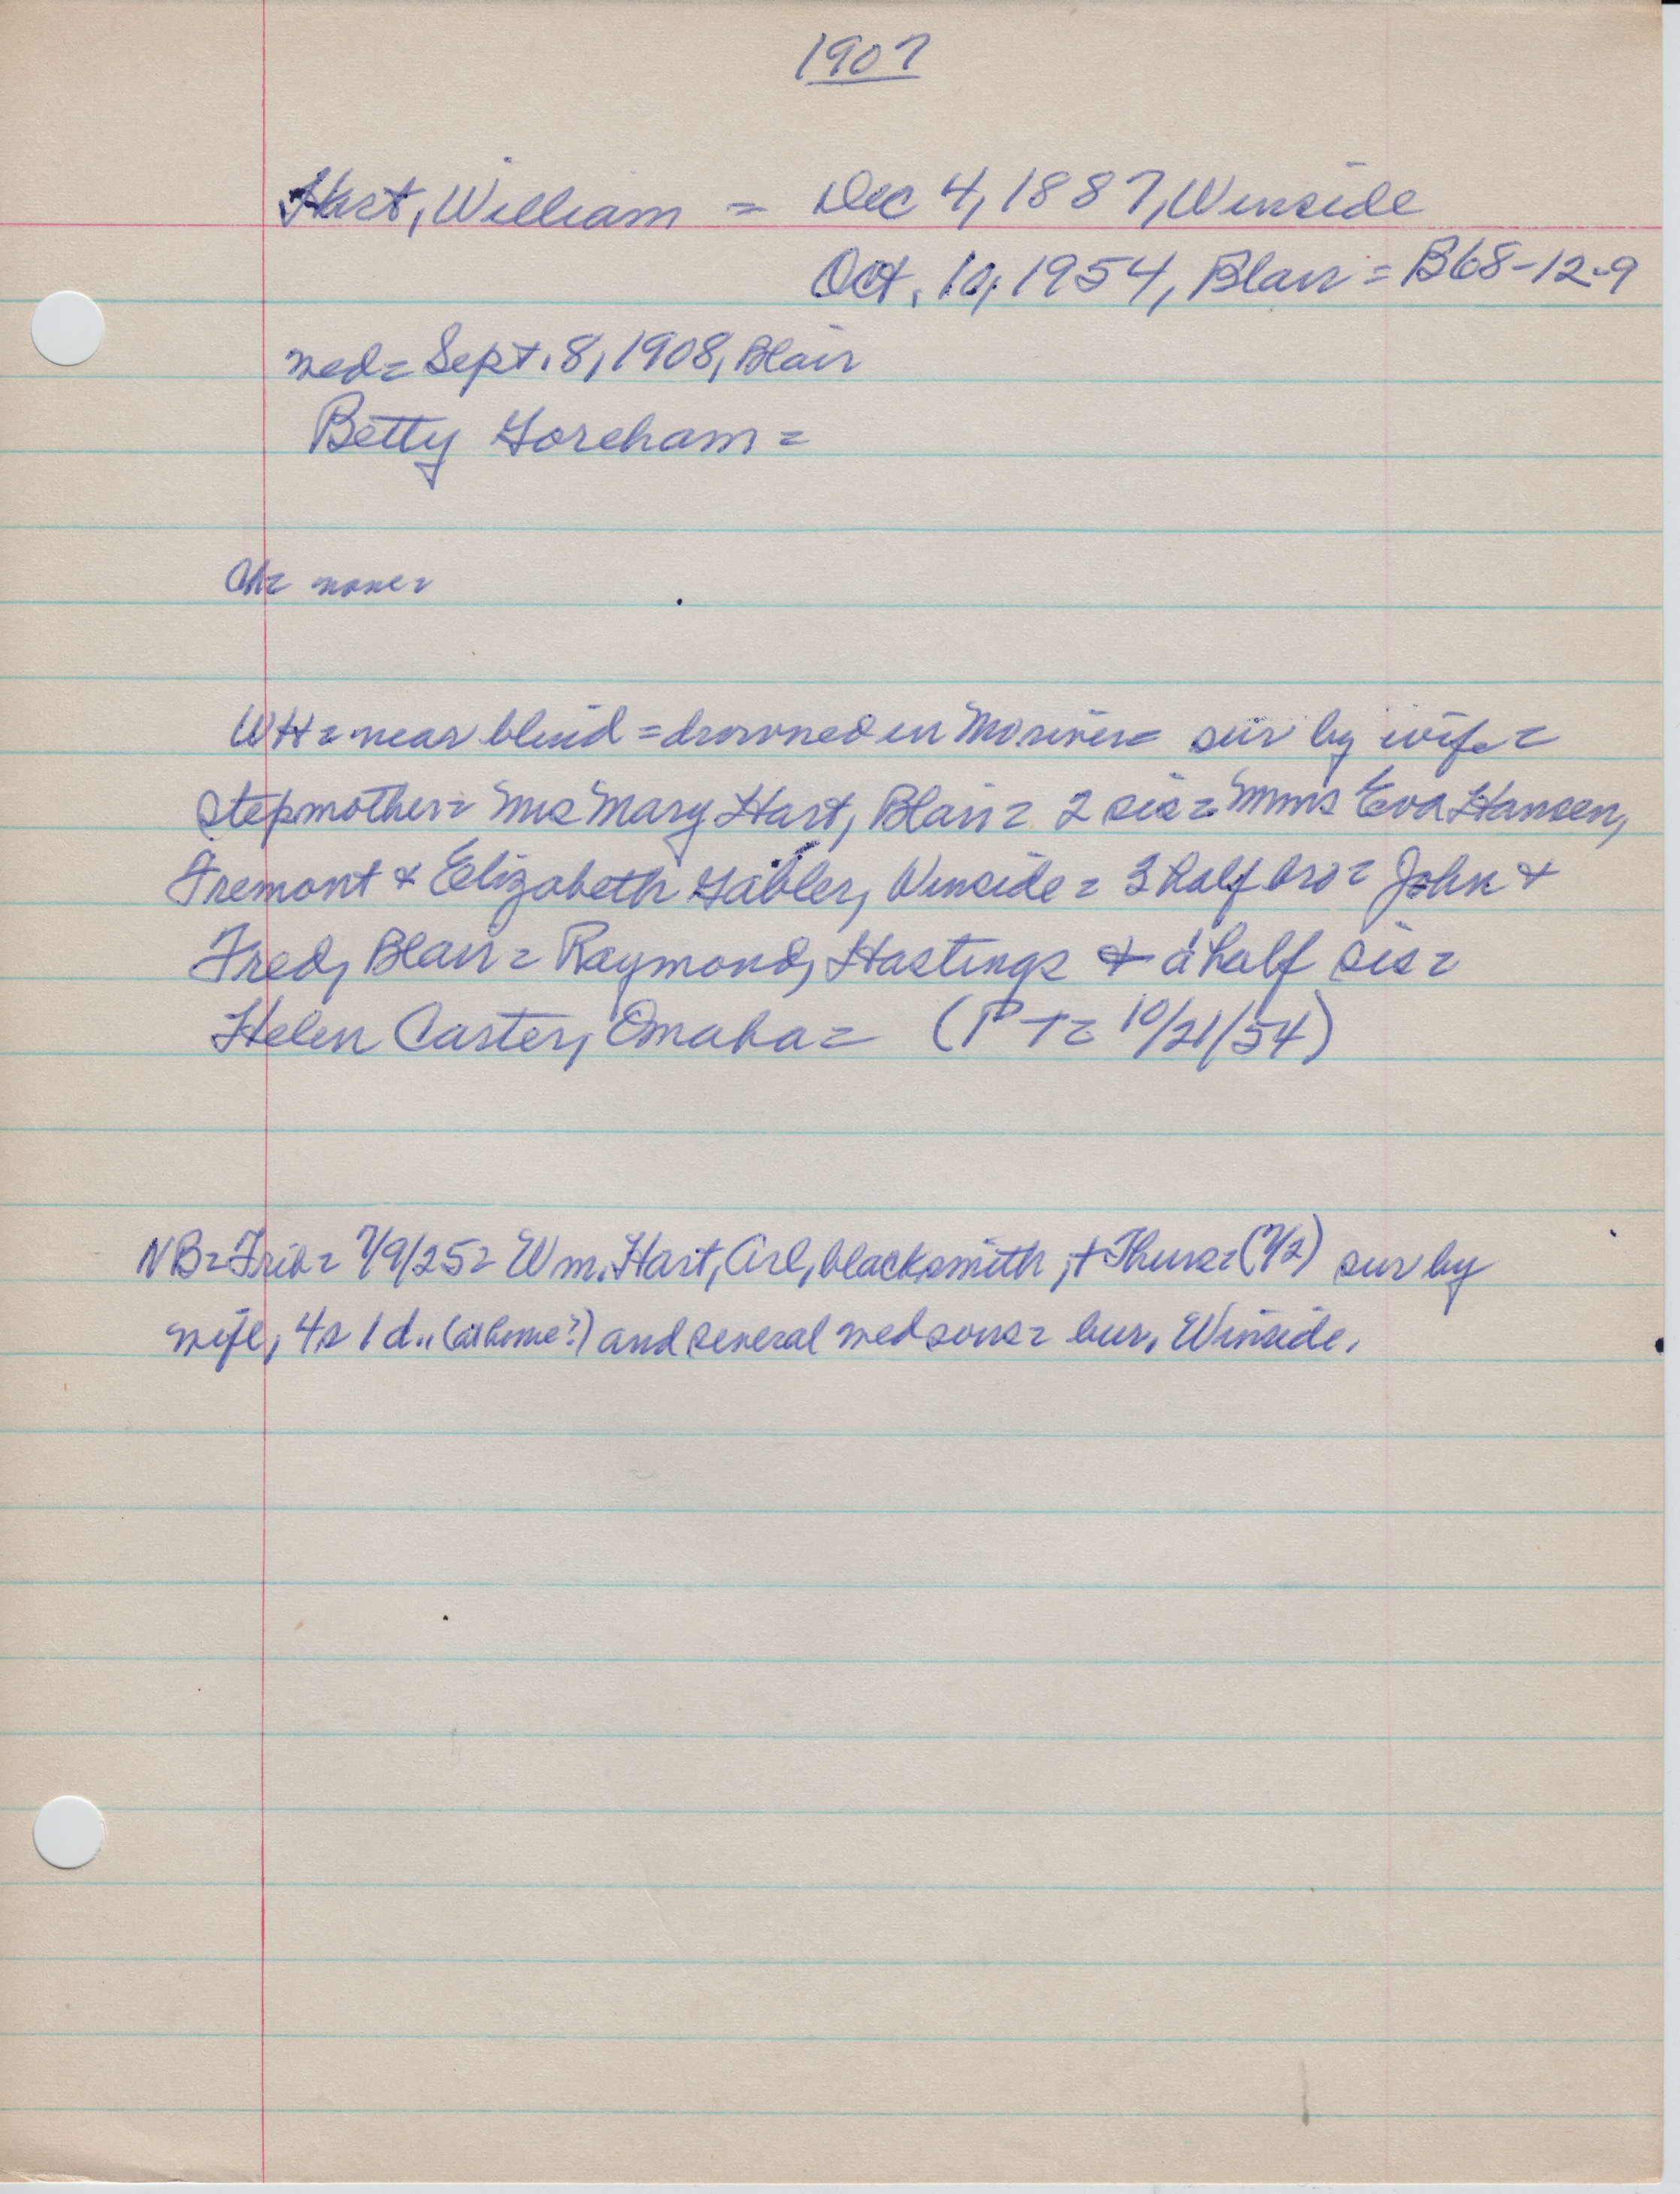 1907
Hart, William = Dec 4, 1887, Winside
Oct. 10, 1954, Blair = B68-12-9
wed = Sept. 8, 1908, Blair
Betty Goreham =
Ch = none =
WH = near blind = drowned in Mo river = sur by wife =
stepmother = Mrs Mary Hart, Blair = 2 sis = Mmes Eva Hansen,
Fremont & Elizabeth Gabler, Winside = 3 half bro = John &
Fred, Blair = Raymond, Hastings & a half sis =
Helen Carter, Omaha = (P-T = 10/21/54)
NB = Trib = 7/9/25 = Wm. Hart, Arl, blacksmith, + Thurs = (7/2) sur by
wife, 4s 1 d.. (at home?) and several wed sons = bur, Winside.